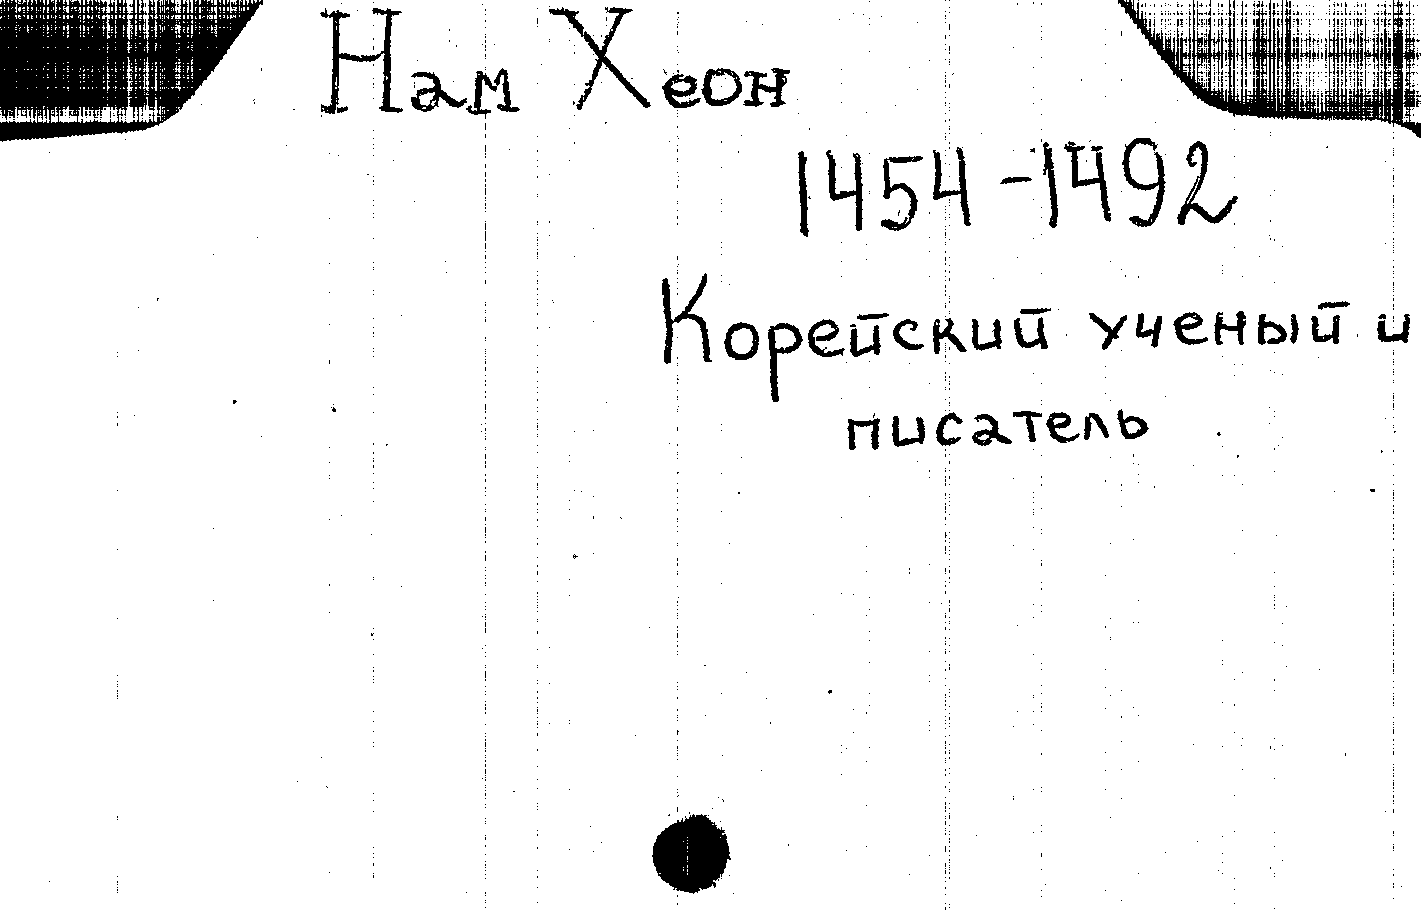 Нам Хеон
1454-1492
Корейский ученый и
писатель